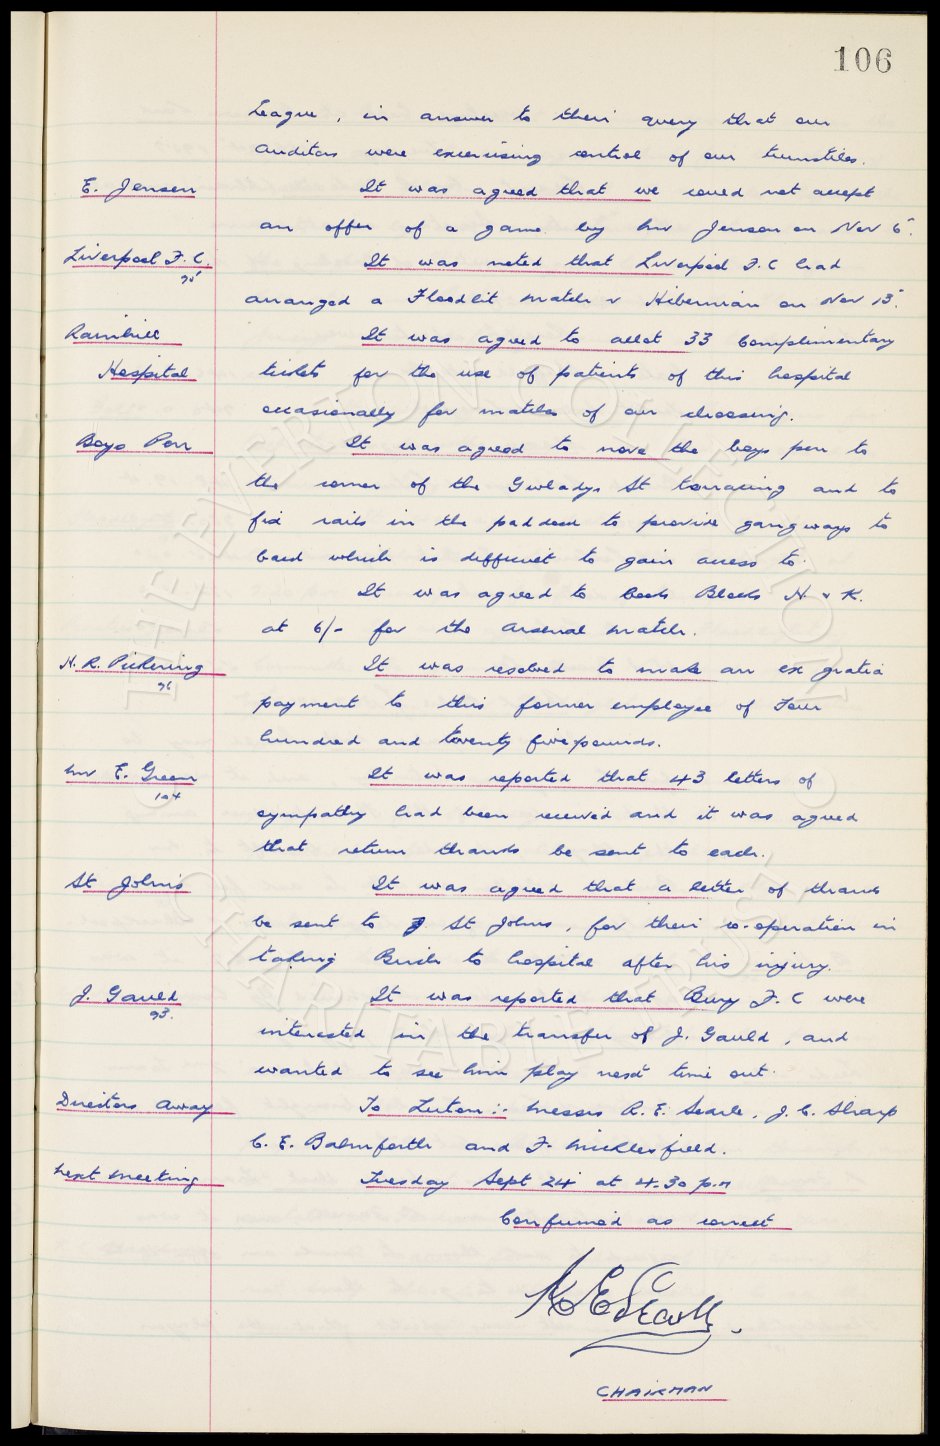 106
League, in answer to their query that our
auditors were exercising control of our turnstiles.
E. Jensen It was agreed that we could not accept
an offer of a game by Mr Jensen on Nov 6.
Liverpool F.C. It was noted that Liverpool F.C had
95
arranged a Floodlit match v Hibernian on Nov 13.
Rainhill It was agreed to allot 33 Complimentary
Hospital tickets for the use of patients of this hospital
occasionally for matches of our choosing.
Boys Pen It was agreed to move the boys pen to
the corner of the Gwladys St terracing and to
fix rails in the paddock to provide gangways to
which is difficult to gain access to.
It was agreed to book Blocks H & K.
at 6/- for the Arsenal match.
H. R. Pickering It was resolved to make an ex gratia
96
payment to this former employee of Four
hundred and twenty five pounds.
Mr E. Green It was reported that 43 letters of
104
sympathy had been received and it was agreed
that return thanks be sent to each.
St John's It was agreed that a letter of thanks
be sent to St Johns, for their co-operation in
taking Birch to hospital after his injury.
J. Gauld It was reported that Bury F.C were
93.
interested in the transfer of J. Gauld, and
wanted to see him play next time out.
Directors Away To Luton :- Messrs R. E. Searle, J. C. Sharp
C. E. Balmforth and F. Micklesfield.
Next Meeting Tuesday Sept 24 at 4.30 p.m
Confirmed as correct
CHAIRMAN
THE EVERTON COLLECTION
CHARITABLE TRUST